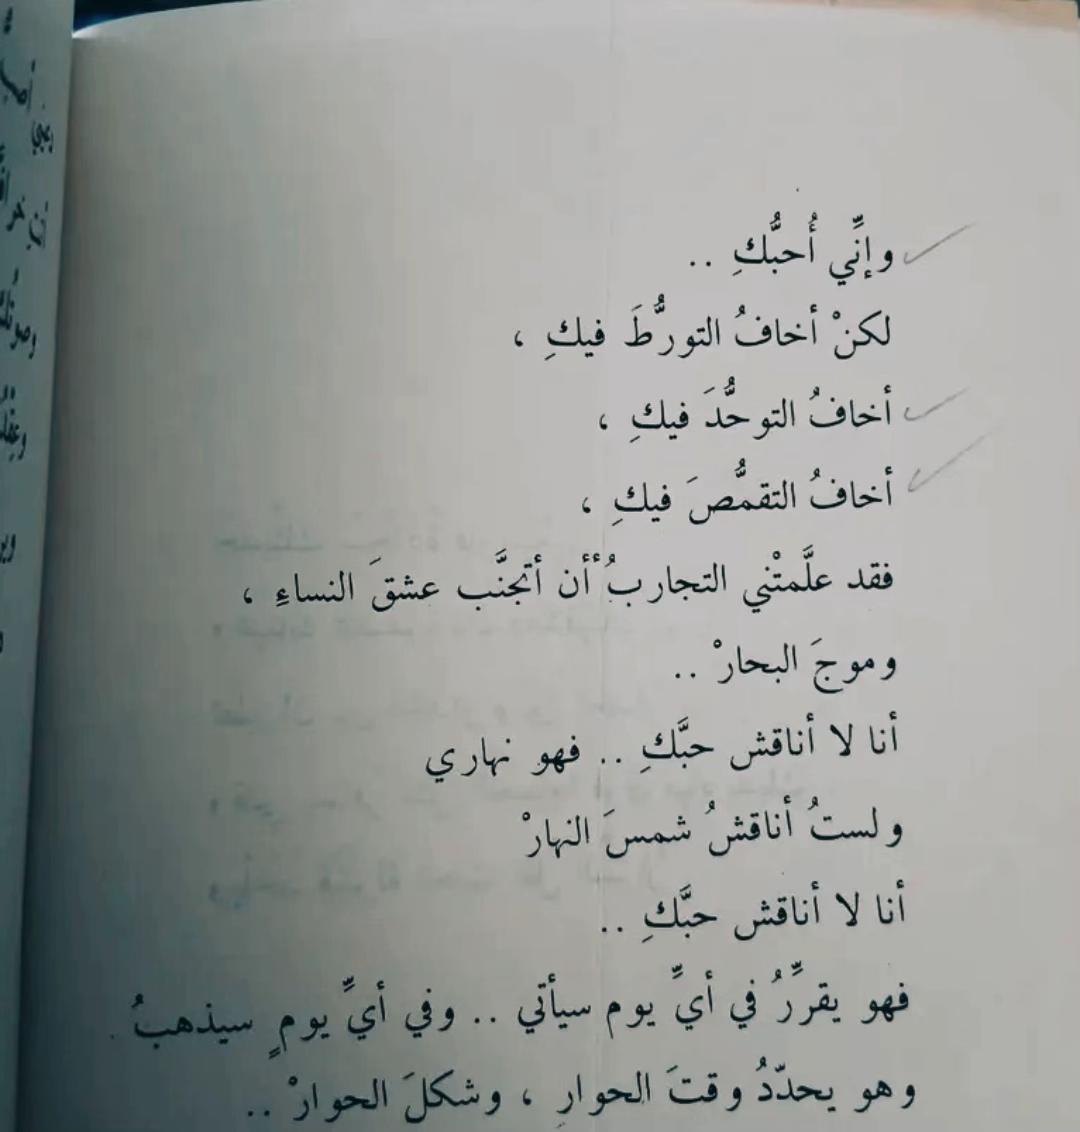 وإنِّي أُحبُّكِ ..
لكنْ أخافُ التورُّطَ فيكِ ،
أخافُ التوحُّدَ فيكِ ،
أخافُ التقمُّصَ فيكِ ،
فقد علَّمتْني التجاربُ أن أتجنَّب عشقَ النساءِ ،
وموجَ البحارْ ..
أنا لا أناقش حبَّكِ .. فهو نهاري
ولستُ أناقشُ شمسَ النهارْ
أنا لا أناقش حبَّكِ ..
فهو يقرِّرُ في أيِّ يوم سيأتي .. وفي أيِّ يومٍ سيذهبُ .
وهو يحدّدُ وقتَ الحوارِ ، وشكلَ الحوارْ ..